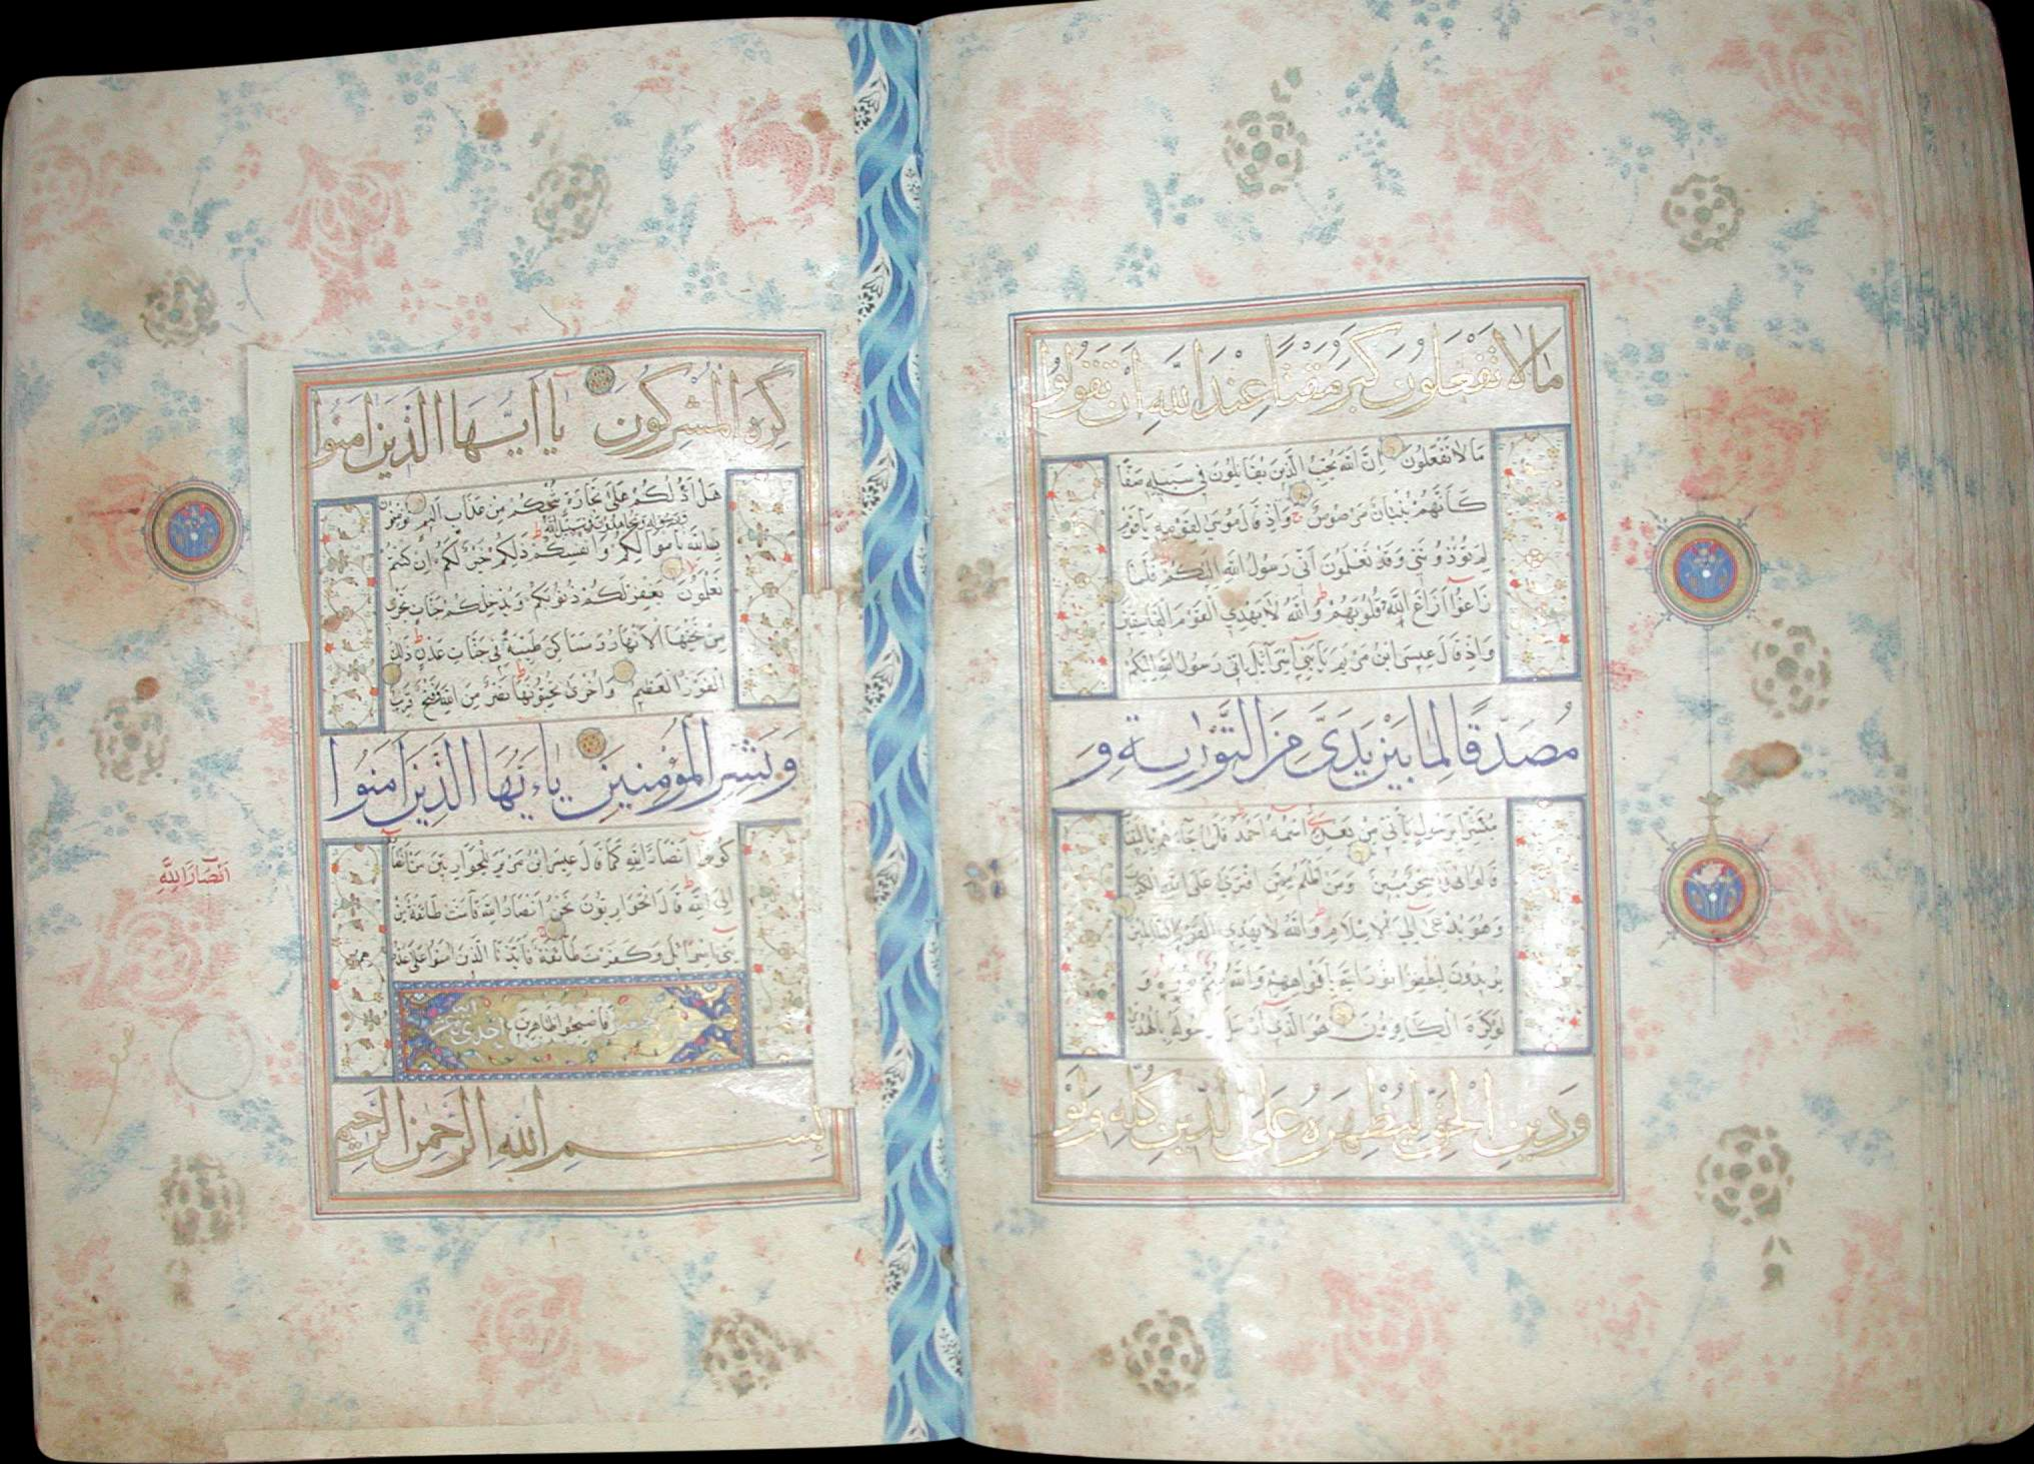 مَا لَا تَفْعَلُونَ كَبُرَ مَقْتًا عِنْدَ اللَّهِ أَنْ تَقُولُوا
مَا لَا تَفْعَلُونَ إِنَّ اللَّهَ يُحِبُّ الَّذِينَ يُقَاتِلُونَ فِي سَبِيلِهِ صَفًّا
كَأَنَّهُمْ بُنْيَانٌ مَرْصُوصٌ وَإِذْ قَالَ مُوسَى لِقَوْمِهِ يَا قَوْمِ
لِمَ تُؤْذُونَنِي وَقَدْ تَعْلَمُونَ أَنِّي رَسُولُ اللَّهِ إِلَيْكُمْ فَلَمَّا
زَاغُوا أَزَاغَ اللَّهُ قُلُوبَهُمْ وَاللَّهُ لَا يَهْدِي الْقَوْمَ الْفَاسِقِينَ
وَإِذْ قَالَ عِيسَى ابْنُ مَرْيَمَ يَا بَنِي إِسْرَائِيلَ إِنِّي رَسُولُ اللَّهِ إِلَيْكُمْ
مُصَدِّقًا لِمَا بَيْنَ يَدَيَّ مِنَ التَّوْرَيةِ وَ
مُبَشِّرًا بِرَسُولٍ يَأْتِي مِنْ بَعْدِي اسْمُهُ أَحْمَدُ فَلَمَّا جَاءَهُمْ بِالْبَيِّنَاتِ
قَالُوا هَذَا سِحْرٌ مُبِينٌ وَمَنْ أَظْلَمُ مِمَّنِ افْتَرَى عَلَى اللَّهِ الْكَذِبَ
وَهُوَ يُدْعَى إِلَى الْإِسْلَامِ وَاللَّهُ لَا يَهْدِي الْقَوْمَ الظَّالِمِينَ
يُرِيدُونَ لِيُطْفِئُوا نُورَ اللَّهِ بِأَفْوَاهِهِمْ وَاللَّهُ مُتِمُّ نُورِهِ وَ
لَوْ كَرِهَ الْكَافِرُونَ هُوَ الَّذِي أَرْسَلَ رَسُولَهُ بِالْهُدَى
وَدِينِ الْحَقِّ لِيُظْهِرَهُ عَلَى الدِّينِ كُلِّهِ وَلَوْ
كَرِهَ الْمُشْرِكُونَ يَا أَيُّهَا الَّذِينَ آمَنُوا
هَلْ أَدُلُّكُمْ عَلَى تِجَارَةٍ تُنْجِيكُمْ مِنْ عَذَابٍ أَلِيمٍ تُؤْمِنُونَ
وَرَسُولِهِ وَتُجَاهِدُونَ فِي سَبِيلِ اللَّهِ
بِاللَّهِ بِأَمْوَالِكُمْ وَأَنْفُسِكُمْ ذَلِكُمْ خَيْرٌ لَكُمْ إِنْ كُنْتُمْ
تَعْلَمُونَ يَغْفِرْ لَكُمْ ذُنُوبَكُمْ وَيُدْخِلْكُمْ جَنَّاتٍ تَجْرِي
مِنْ تَحْتِهَا الْأَنْهَارُ وَمَسَاكِنَ طَيِّبَةً فِي جَنَّاتِ عَدْنٍ ذَلِكَ
الْفَوْزُ الْعَظِيمُ وَأُخْرَى تُحِبُّونَهَا نَصْرٌ مِنَ اللَّهِ وَفَتْحٌ قَرِيبٌ
وَبَشِّرِ الْمُؤْمِنِينَ يَاءَيُّهَا الَّذِينَ آمَنُوا
كُونُوا أَنْصَارَ اللَّهِ كَمَا قَالَ عِيسَى ابْنُ مَرْيَمَ لِلْحَوَارِيِّينَ مَنْ أَنْصَارِي
إِلَى اللَّهِ قَالَ الْحَوَارِيُّونَ نَحْنُ أَنْصَارُ اللَّهِ فَآمَنَتْ طَائِفَةٌ مِنْ
بَنِي إِسْرَائِيلَ وَكَفَرَتْ طَائِفَةٌ فَأَيَّدْنَا الَّذِينَ آمَنُوا عَلَى عَدُوِّهِمْ
فَأَصْبَحُوا ظَاهِرِينَ
بِسْمِ اللَّهِ الرَّحْمَنِ الرَّحِيمِ
أَنْصَارَ اللَّهِ